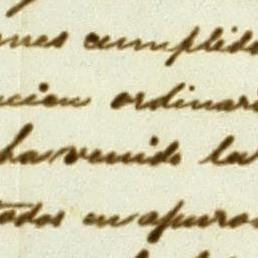 ones cumplido
ucion ordinari
ha venido la
todos en apuro